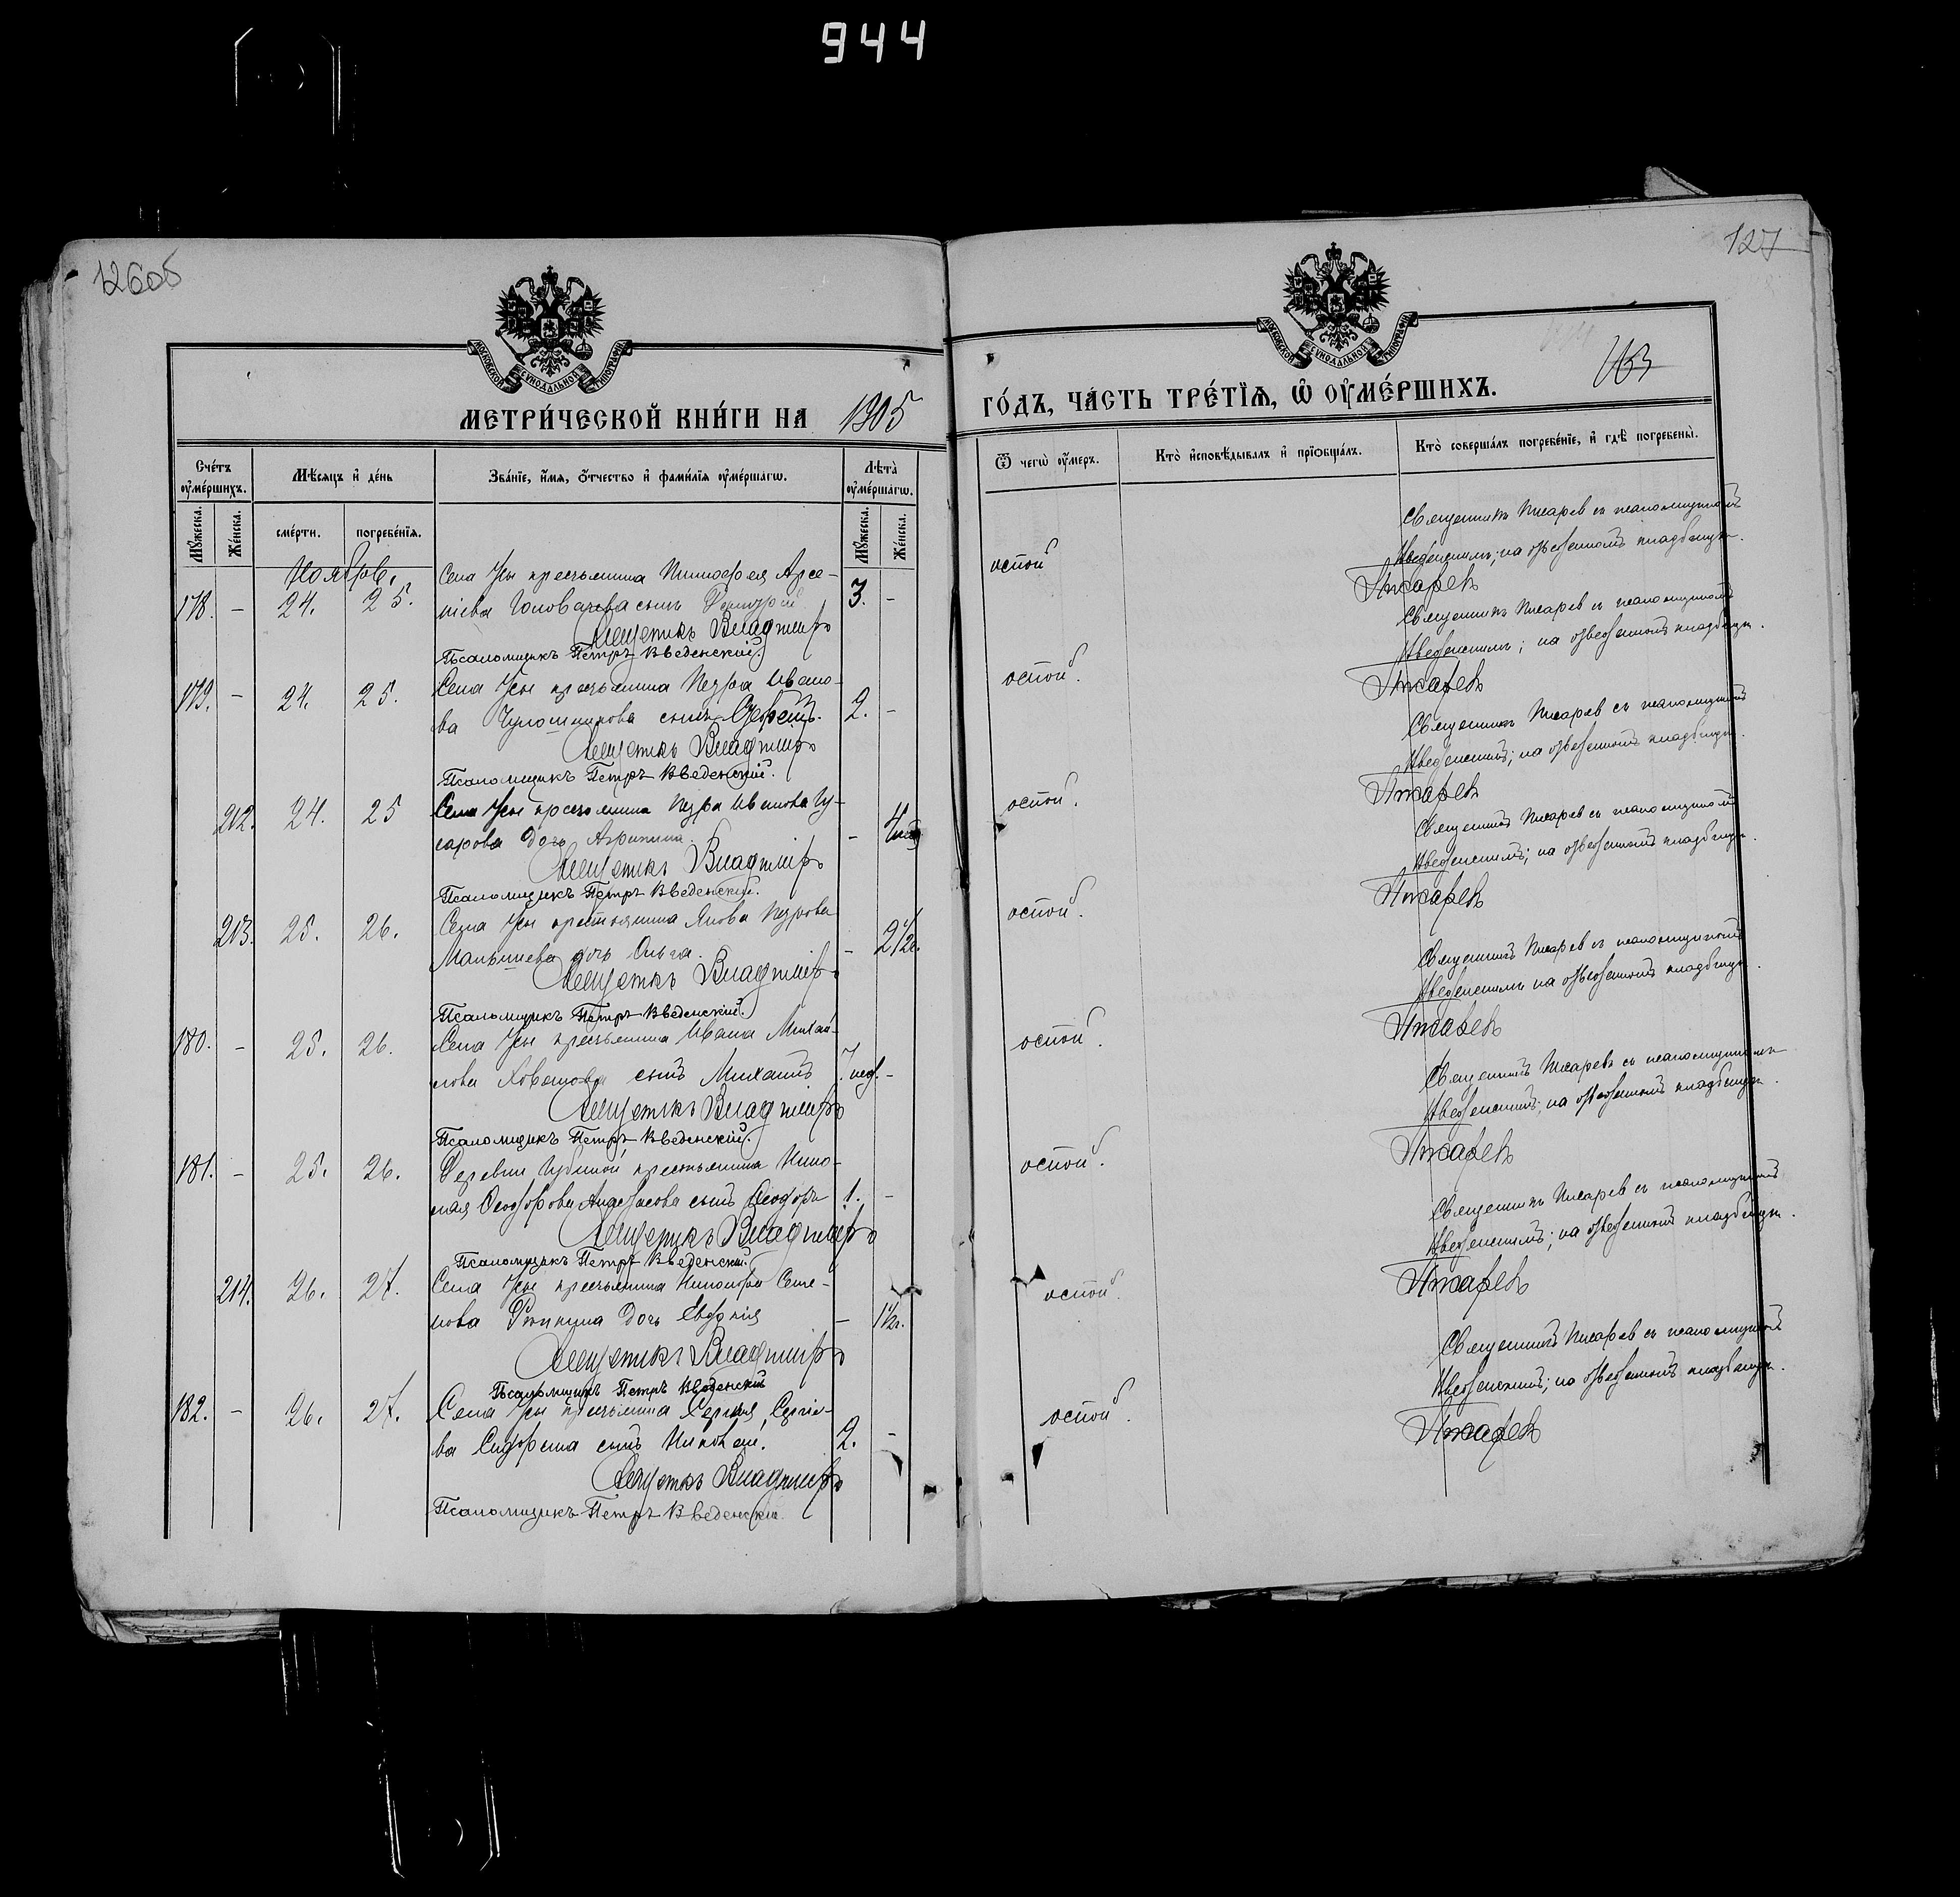 944
126об
127
163
МОСКОВСКОЙ СУНОДАЛЬНОЙ ТИПОГРАФІИ
МОСКОВСКОЙ СУНОДАЛЬНОЙ ТИПОГРАФІИ
МЕТРИ́ЧЕСКОЙ КНИ́ГИ НА 1905
ГО́ДЪ, ЧА́СТЬ ТРЕ́ТІѦ, Ѡ҆ ОУ҆МЕ́РШИХЪ.
Сче́тъ оу҆ме́ршихъ.
Мѣ́сяцъ и҆ де́нь
Зва́ніе, и҆́мя, ѻ҆́тчество и҆ фами́лія оу҆ме́ршагѡ.
Лѣ́та оу҆ме́ршагѡ.
Мꙋ́жеска.
Же́нска.
сме́рти.
погребе́нія.
Мꙋ́жеска.
Же́нска.
Ѿ чегѡ̀ оу҆́меръ.
Кто̀ и҆сповѣ́дывалъ и҆ пріѡбща́лъ.
Кто̀ соверша́лъ погребе́ніе, и҆ гдѣ̀ погребены̀.
Ноябрь.
Села Усы крестьянина Тимоѳея Арсе-
178. - 24. 25. ніева Головачева сынъ Димитрій 3. -
Священникъ Владиміръ
Псаломщикъ Петръ Введенскій.
оспой
Священникъ Писарев съ псаломщикомъ
Введенскимъ; на отведенномъ кладбищѣ.
Писаревъ
179. - 24. 25. Села Усы крестьянина Петра Ивано-
ва сынъ Сергій. 2. -
Священникъ Владиміръ
Псаломщикъ Петръ Введенскій.
оспой.
Священникъ Писарев съ псаломщикомъ
Введенскимъ; на отведенномъ кладбищѣ.
Писаревъ
212. 24. 25 Села Усы крестьянина Петра Иванова
дочь Агрипина. - 4
Священникъ Владиміръ
Псаломщикъ Петръ Введенскій.
оспой.
Священникъ Писарев съ псаломщикомъ
Введенскимъ; на отведенномъ кладбищѣ.
Писаревъ
213. 25. 26. Села Усы крестьянина Якова Петрова
дочь Ольга. - 2 1/2 г.
Священникъ Владиміръ
Псаломщикъ Петръ Введенскій.
оспой.
Священникъ Писарев съ псаломщикомъ
Введенскимъ; на отведенномъ кладбищѣ.
Писаревъ
180. - 25. 26. Села Усы крестьянина Ивана Михай-
лова сынъ Михаилъ 7 нед. -
Священникъ Владиміръ
Псаломщикъ Петръ Введенскій.
оспой.
Священникъ Писарев съ псаломщикомъ
Введенскимъ на отведенномъ кладбищѣ.
Писаревъ
181. - 25. 26. Деревни крестьянина Нико-
лая Ѳеодорова сынъ Ѳеодоръ 1. -
Священникъ Владиміръ
Псаломщикъ Петръ Введенскій.
оспой.
Священникъ Писаревъ съ псаломщикомъ
Введенскимъ; на отведенномъ кладбищѣ.
Писаревъ
214. 26. 27. Села Усы крестьянина Никифора Семе-
нова дочь Евдокія - 1 1/2 г.
Священникъ Владиміръ
Псаломщикъ Петръ Введенскій
оспой.
Священникъ Писарев съ псаломщикомъ
Введенскимъ; на отведенномъ кладбищѣ.
Писаревъ
182. - 26. 27. Села Усы крестьянина Сергѣя Сергіе-
ва сынъ Николай. 2. -
Священникъ Владиміръ
Псаломщикъ Петръ Введенскій.
оспой.
Священникъ Писарев съ псаломщикомъ
Введенскимъ; на отведенномъ кладбищѣ.
Писаревъ